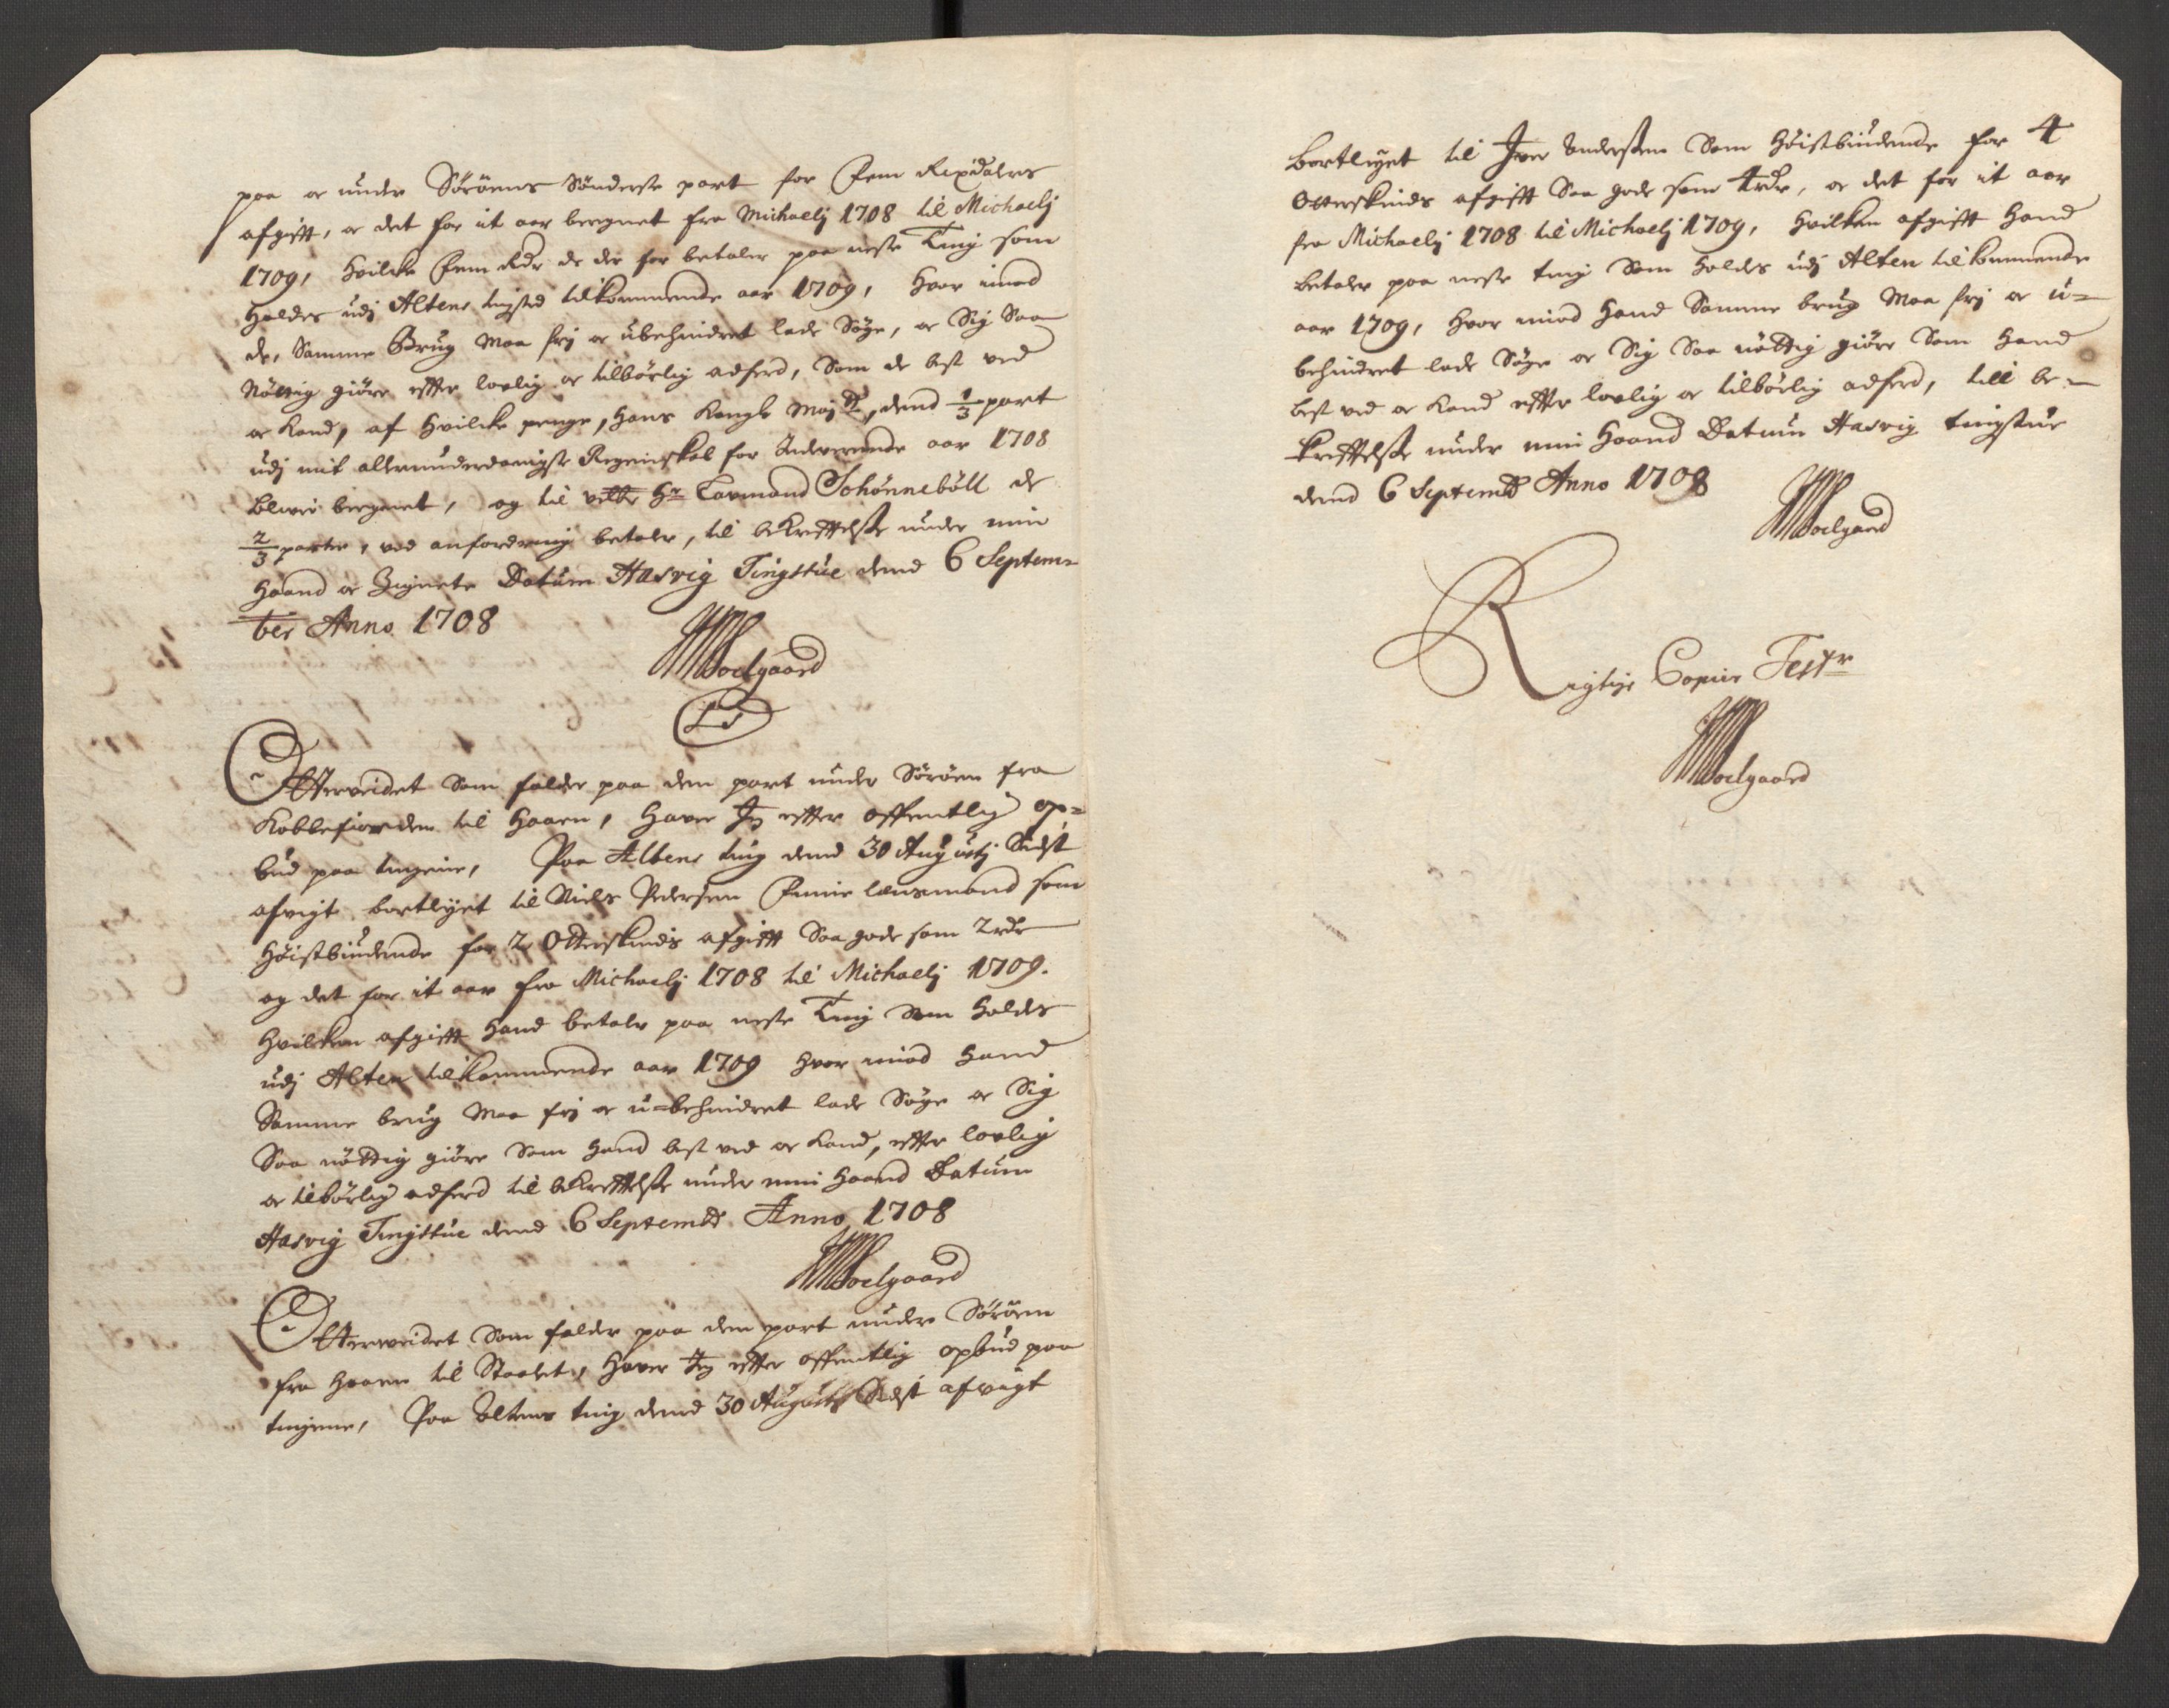 paa og under Söröens Sönderste part for Fem Rixdalers
afgifft, og det for it aar beregnet fra Michaelj 1708 til Michaelj
1709, hvilcke Fem Rdr de der for betaler paa neste Ting som
holdes udj Altens tingsted tilkommende aar 1709, hvor imod
de, Samme Brug maa frj og ubehindret lade Søge, og Sig Saa
Nöttig giöre effter lovlig og tilbörlig adferd, Som de best ved
og kand, af hvilcke penge, hans Kongl: Maytt, dend 1/3 part
udj mit allerunderdanigste Regenskab for Inderverende aar 1708
bliver beregnet, og til velbr Hr Laumand Schönneböll de
2/3 parter, ved anfordring betaler, til bekrefftelse under min
Haand og Zignete Datum Hasvig Tingstue dend 6 Septem-
ber Anno 1708
Soelgaard
LS
Otterveidet Som falder paa den part under Söröen fra
Kobbefiorden til Haaen, haver Jeg effter offentlig op-
bud paa tingene, Paa Altens ting dend 30 Augustj Sidst
afvigt bortlyet til Niels Pedersen Finne lensmand som
Höistbiudende for 2 Otterskinds afgifft Saa gode som 2 rdr
og det for it aar fra Michaelj 1708 til Michaelj 1709.
Hvilcken afgifft hand betaler paa neste Ting Som holdes
udj Alten tilkommende aar 1709 hvor imod hand
Samme brug maa frj og u-behindret lade Søge og Sig
Saa nöttig giöre Som hand best ved og kand, effter lovlig
og tilbörlig adferd til bekrefftelse under min haand Datum
Hasvig Tingstue dend 6 Septembr Anno 1708
Soelgaard
Otterveidet Som falder paa den part under Söröen
fra Haaen til Staalet, haver Jeg effter offentlig opbud paa
tingene, Paa Altens ting dend 30 Augustj Sidst afvigt
bortlyet til Iver Andersen Som Höistbiudende for 4
Otterskinds afgifft Saa gode som 4 rdr, og det for it aar
fra Michaelj 1708 til Michaelj 1709, hvilken afgifft hand
betaler paa neste ting Som holdes udj Alten tilkommende
aar 1709, hvor imod hand Samme brug maa frj og u-
behindret lade Søge og Sig Saa nöttig giöre Som hand
best ved og kand effter lovlig og tilbörlig adferd, till be-
krefftelse under min Haand Datum Hasvig tingstue
dend 6 Septembr Anno 1708
Soelgaard
Rigtige Copier Testr
Soelgaard